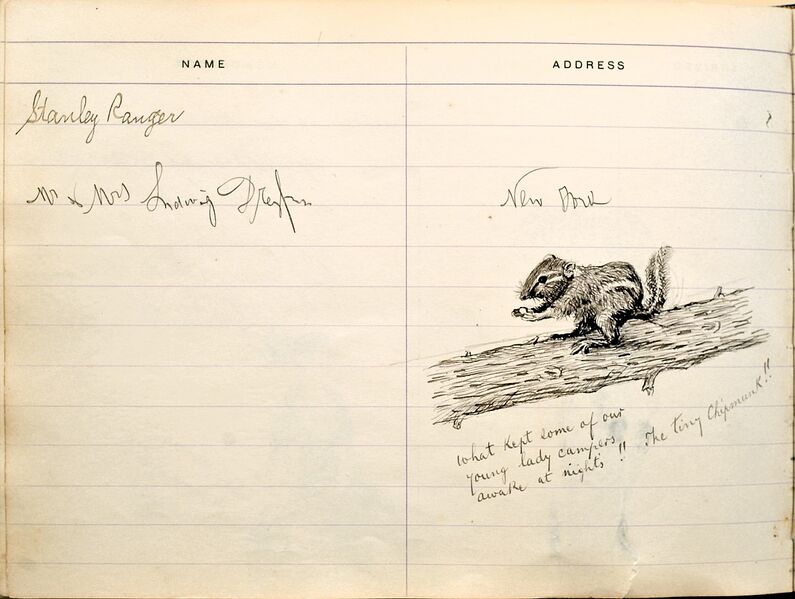 NAME
ADDRESS
Stanley Ranger
Mr & Mrs Ludwig Dreyfus
New York
What kept some of our
young lady campers
awake at nights !! The tiny Chipmunk!!